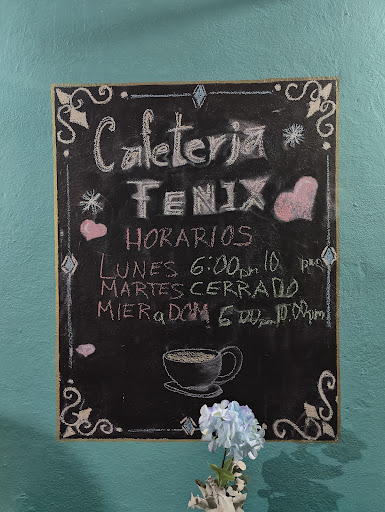 Cafeteria
FENIX
HORARIOS
LUNES 6:00pm 10 pm
MARTES CERRADO
MIER a DOM. 6:00pm 10:00pm